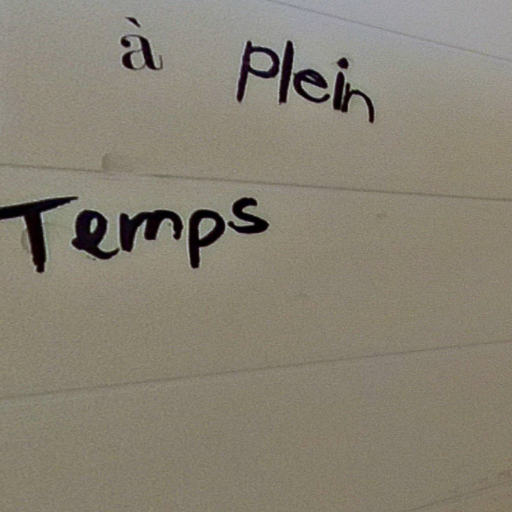 à Plein
Temps